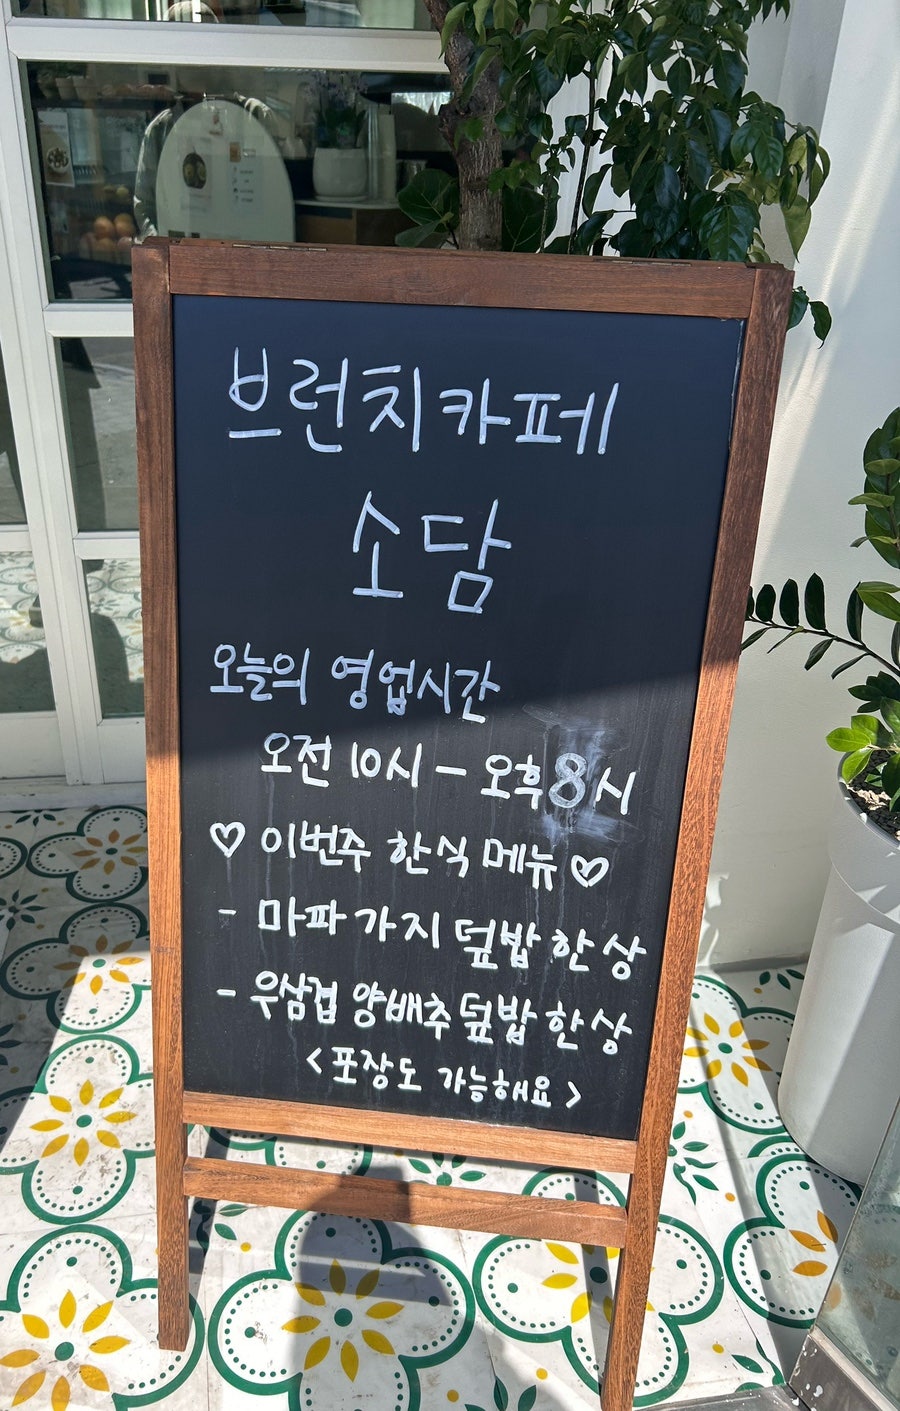 브런치카페
소담
오늘의 영업시간
오전 10시 - 오후 8시
♡ 이번주 한식 메뉴 ♡
- 마파 가지 덮밥 한상
- 우삼겹 양배추 덮밥 한상
<포장도 가능해요>